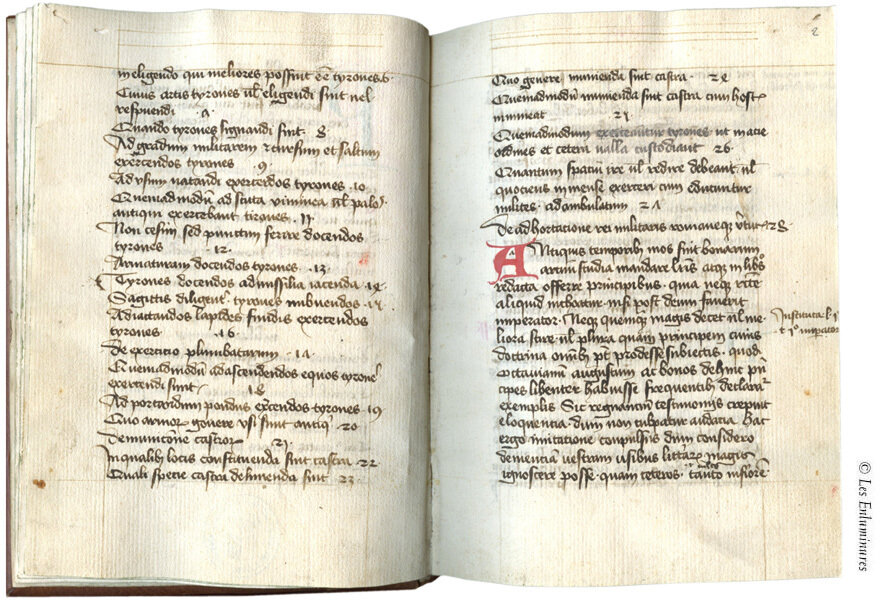 in eligendo qui meliores possint eē tyrones 6
Cuius artis tyrones ul eligendi sint uel
respuendi · 7 ·
Quando tyrones signandi sint · 8
Ad gradum militarem et cursum et saltum
exercendos tyrones · 9 ·
Ad usum natandi exercendos tyrones · 10 ·
Quemadmodū ad scuta viminea ul palos
antiqui exercebant tirones · 11
Non cesim sed punctim ferire docendos
tyrones · 12 ·
Armaturam docendos tyrones · 13 ·
Tyrones docendos ad missilia iacenda 14
Sagittis diligent tyrones imbuendos · 15
Ad iactandos lapides fundis exercendos
tyrones · 16
De exercitio plumbatarum · 17
Quemadmodū ad ascendendos equos tyrones
exercendi sunt · 18
Ad portandum pondus exercendos tyrones · 19
Quo armor genere usi sunt antiqi 20
De munitione castror 21
In qualib locis constituenda sint castra · 22
Quali specie castra delimenda sint 23
2
Quo genere munienda sint castra · 24
Quemadmodū munienda sint castra cum hostes
immineat 25
Quemadmodum exerceantur tyrones ut in acie
ordines et ceteri ualla custodiant 26
Quantum spatium ire ul redire debeant ul
quociens in mense exerceri cum educuntur
milites adambulatum 27
De adhortacione rei militaris romaneque vtutis 28
Antiquis temporib mos fuit bonarum
artium studia mandare lris atq in libros
redacta offerre principibus · quia neque rite
aliquid inchoatur nisi post deum fauerit
imperator · Neq quemq magis decet ul me-
liora scire ul plura quam principem cuius
doctrina omib pt prodesse subiectis · quod
Octauianum augustum ac bonos dehinc prin
cipes libenter habuisse frequentib declarat
exemplis Sic regnantium testimonijs crepuit
eloquentia · dum non culpatur audacia Hac
ergo imitatione compulsus dum considero
clementiam vestram ausibus litterarum magis
ignoscere posse quam ceteros · tanto inferiorem
Instituta l. 1
t 1° imperator
© Les Enluminures